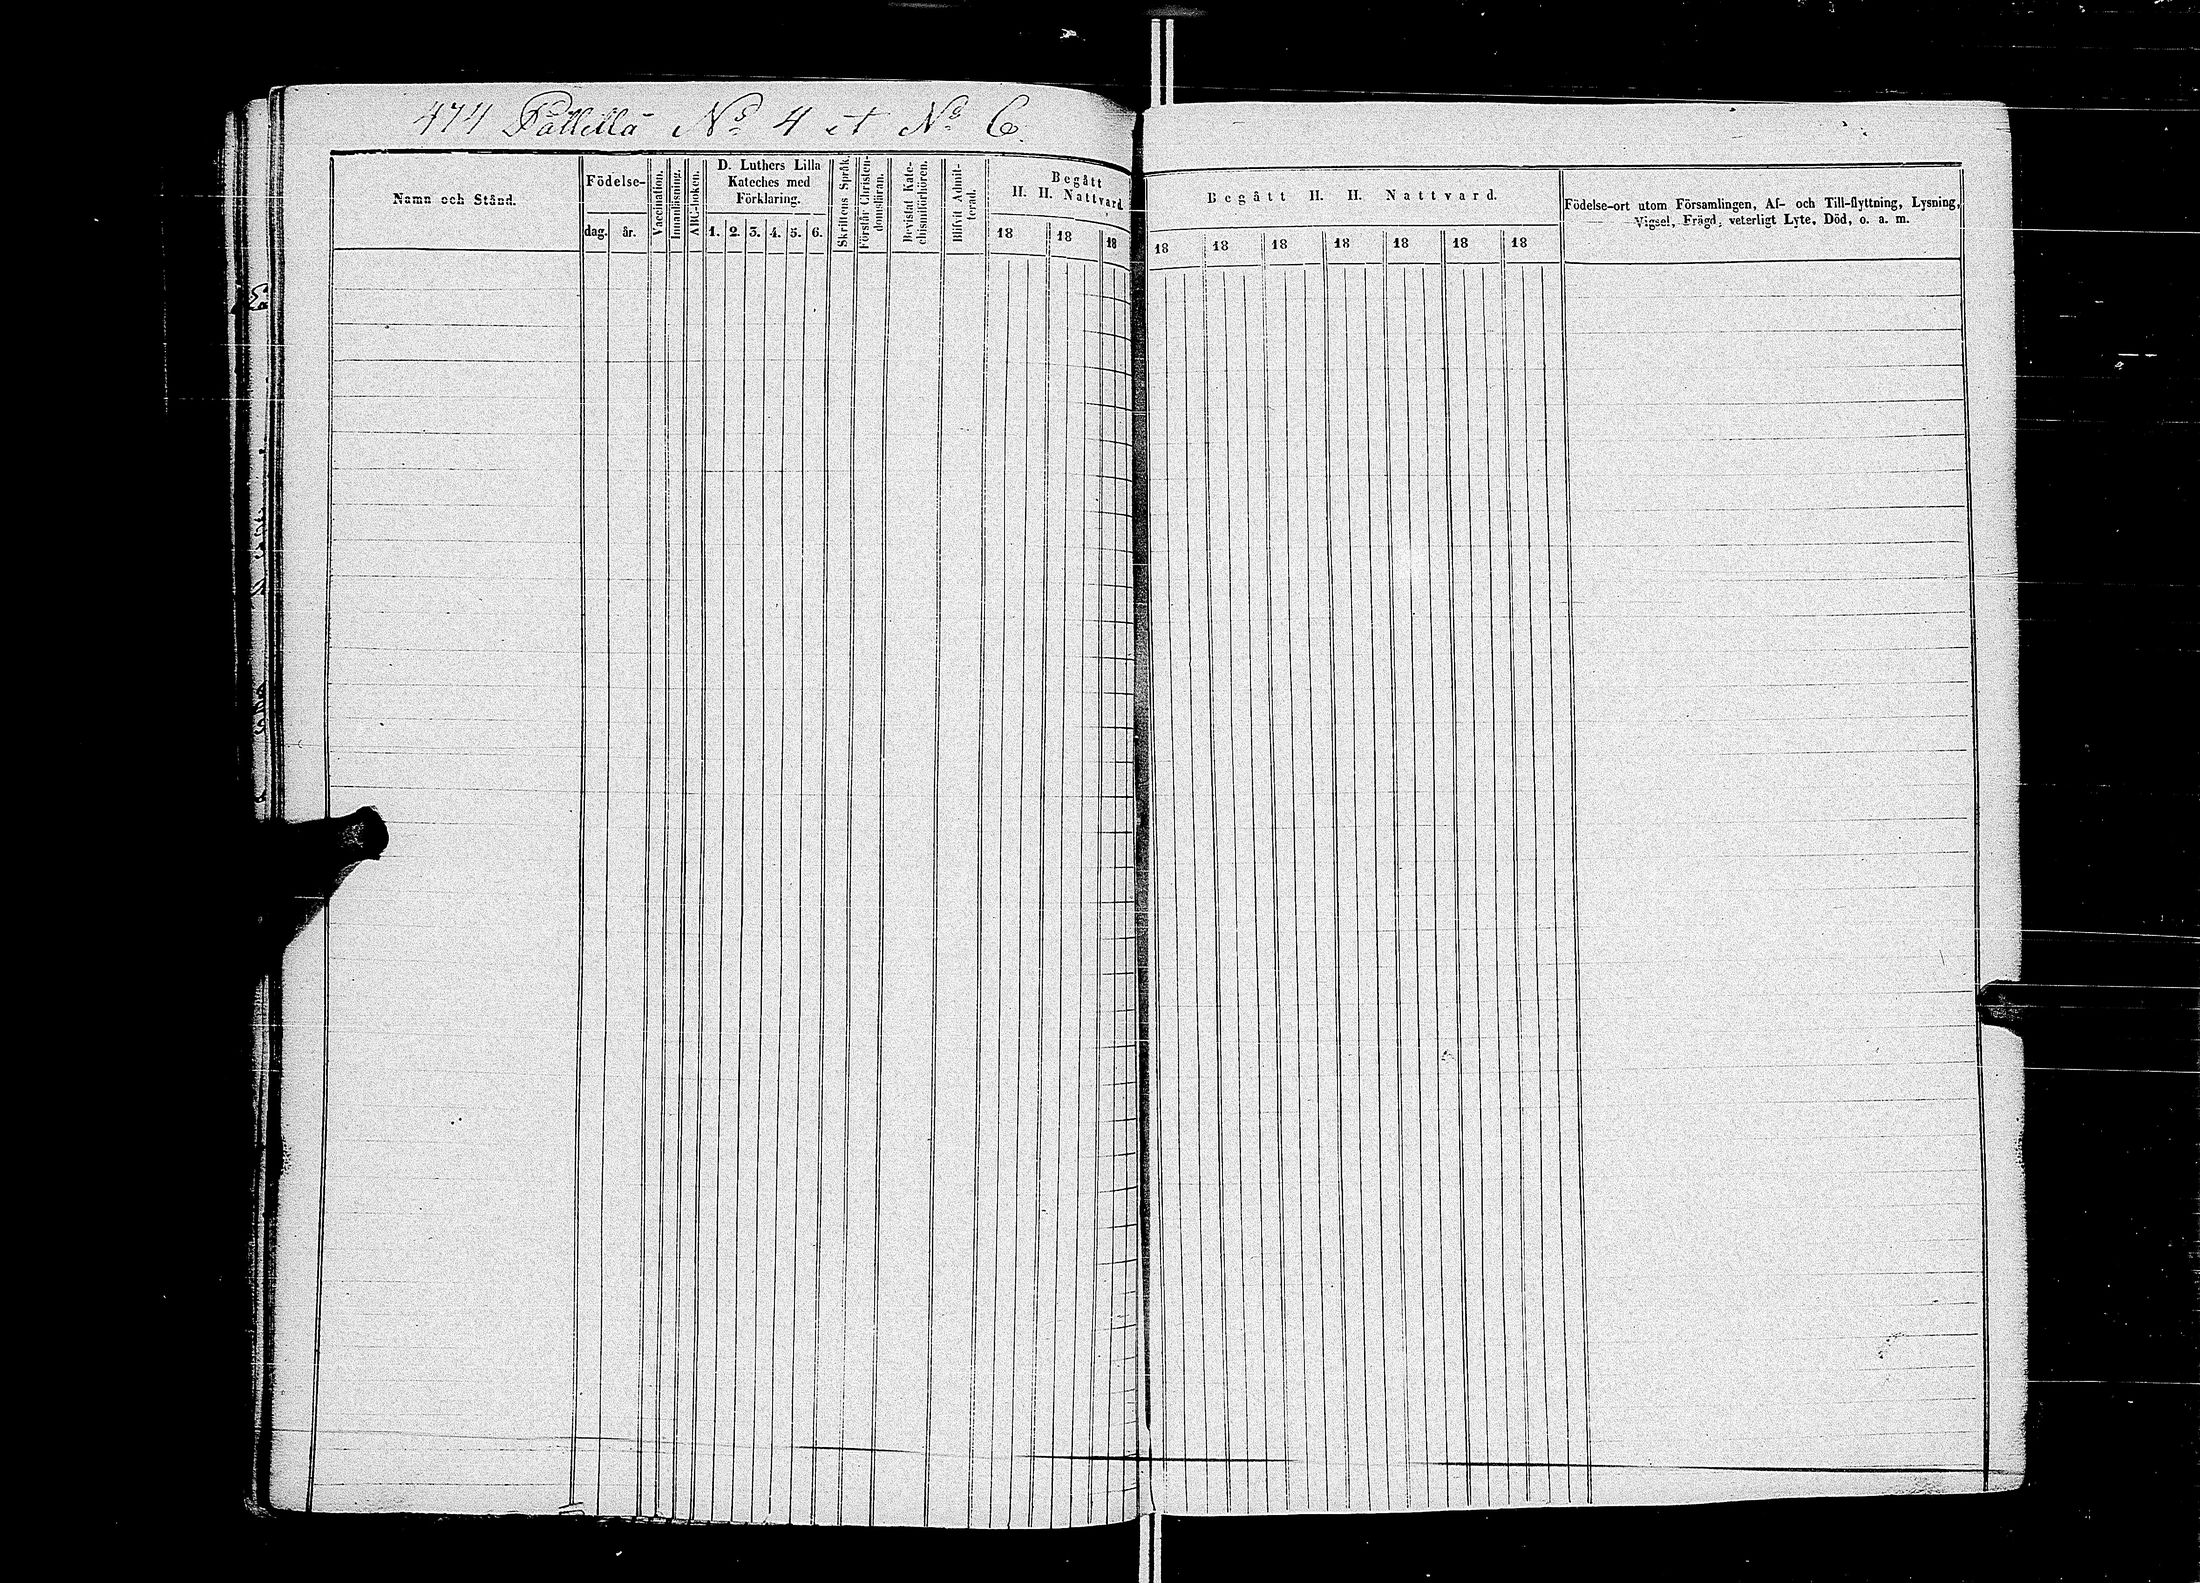 474 Pättelä No 4 et No 6
Namn och Stånd.
Födelse-
dag. år.
Vaccination.
Innanläsning.
ABC-boken.
D. Luthers Lilla
Kateches med
Förklaring.
1. 2. 3. 4. 5. 6.
Skriftens Språk.
Förstår Christen-
domsläran.
Bevistat Kate-
chismiförhören.
Blifvit Admit-
terad.
Begått
H. H. Nattvard.
18 18 18
Begått H. H. Nattvard.
18 18 18 18 18 18 18
Födelse-ort utom Församlingen, Af- och Till-flyttning, Lysning,
Vigsel, Frägd, veterligt Lyte, Död, o. a. m.